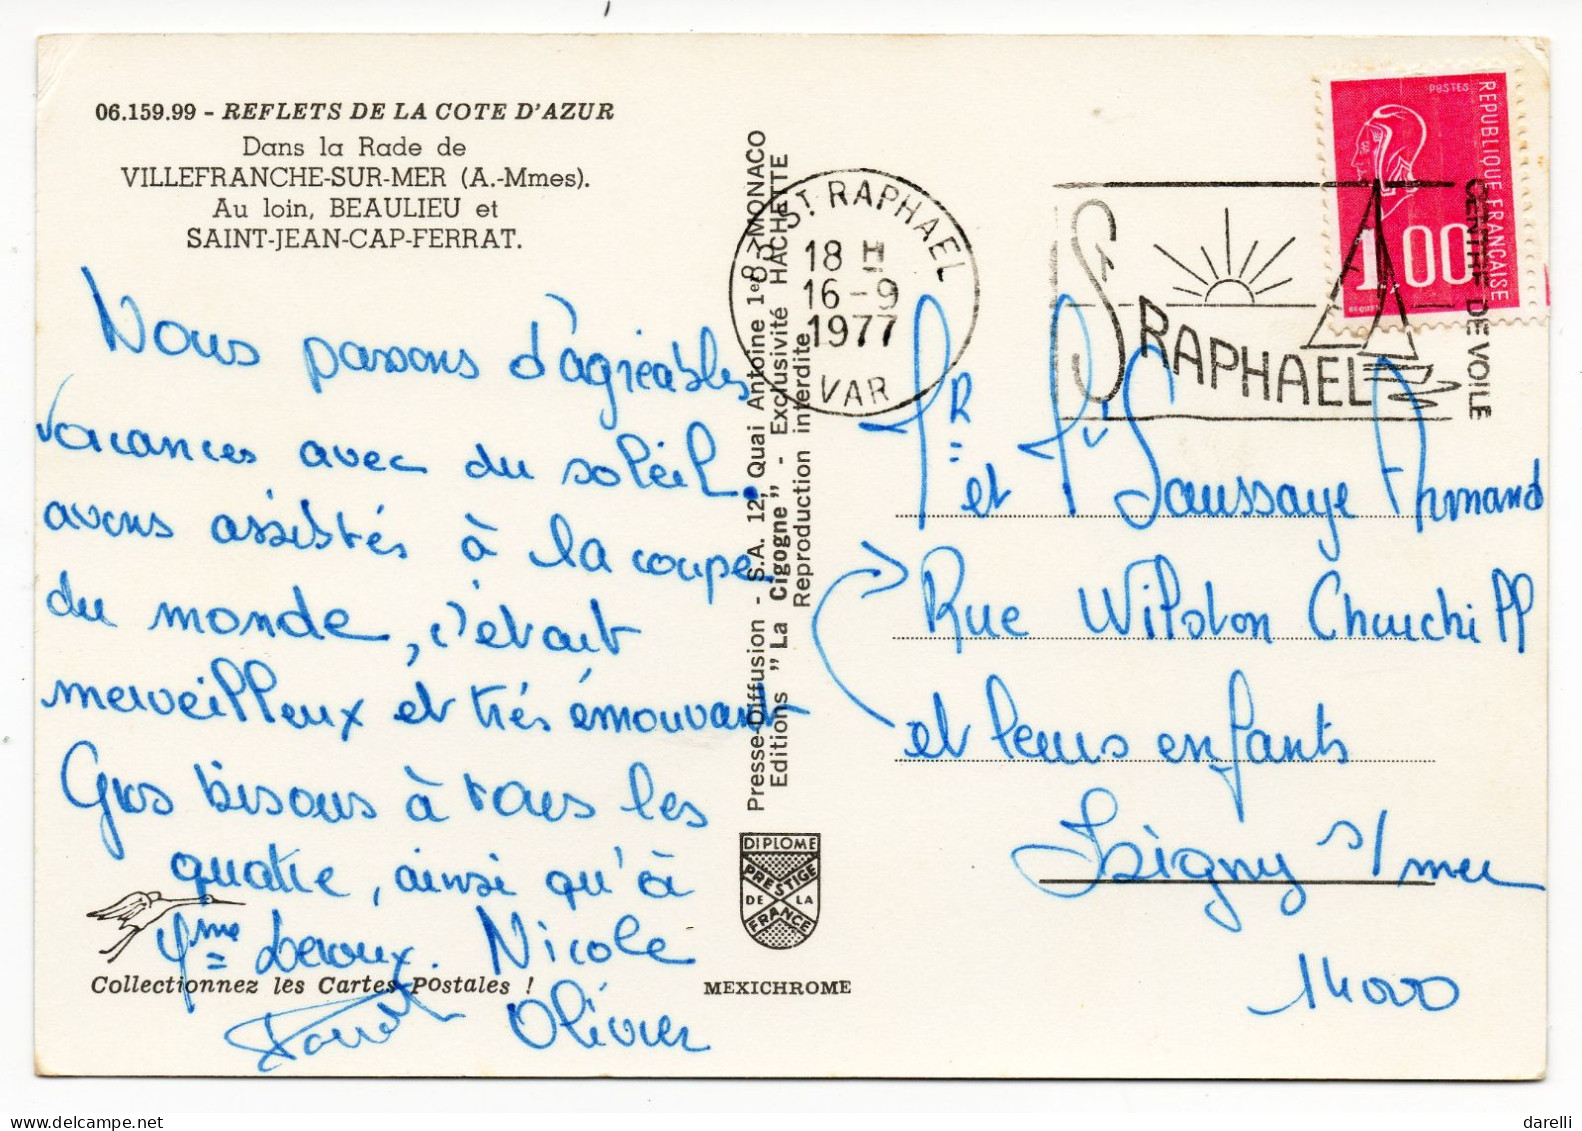 06.159.99 - REFLETS DE LA COTE D'AZUR
Dans la Rade de
VILLEFRANCHE-SUR-MER (A.-Mmes).
Au loin, BEAULIEU et
SAINT-JEAN-CAP-FERRAT.
Nous passons d'agréables
vacances avec du soleil.
avons assistés à la coupe
du monde, c'était
merveilleux et très émouvant
Gros bisous à tous les
quatre, ainsi qu'à
Mme Leroux. Nicole
Olivier
Collectionnez les Cartes Postales !
Presse-Diffusion - S.A. 12, Quai Antoine 1er - MONACO
Editions "La Cigogne" - Exclusivité HACHETTE
Reproduction interdite
DIPLOME
PRESTIGE
DE LA
FRANCE
MEXICHROME
83 ST RAPHAEL
18 H
16-9
1977
VAR
ST RAPHAEL
CENTRE DE VOILE
POSTES
REPUBLIQUE FRANÇAISE
1,00
BEQUET
Mr et Mme Saussaye Armand
Rue Wilston Churchill
et leurs enfants
Isigny s/mer
14000
darelli